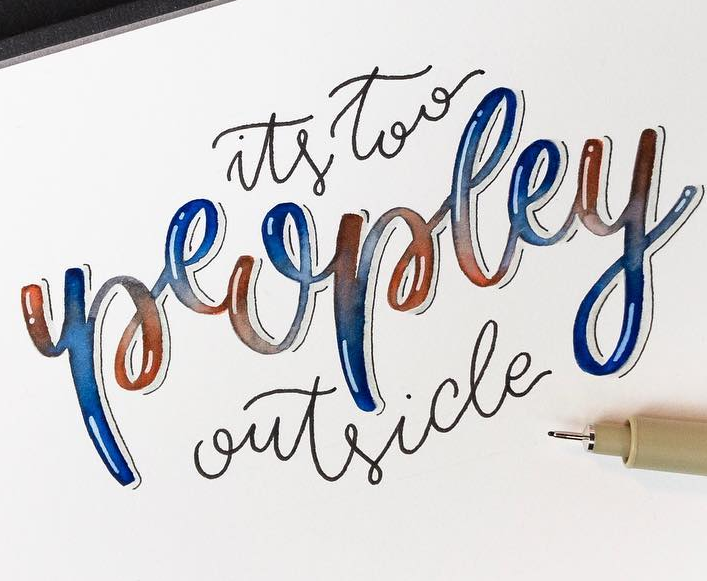 its too
peopley
outside